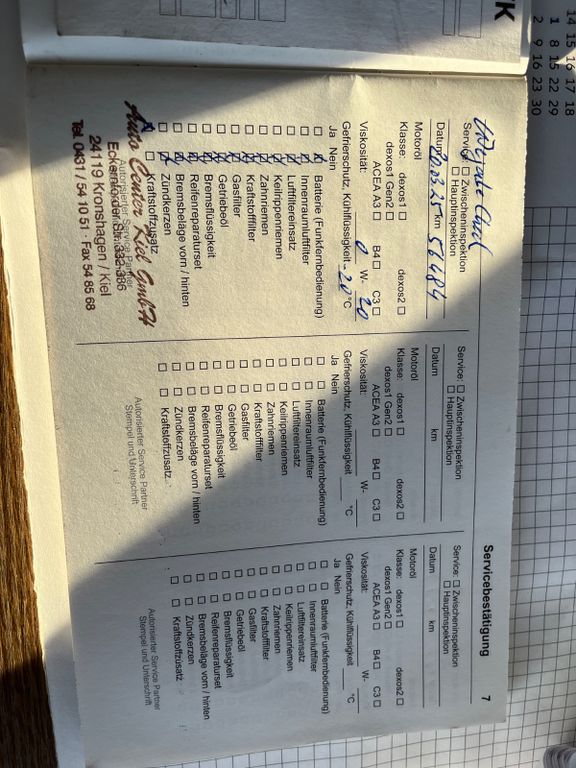 Servicebestätigung 7
Service: □ Zwischeninspektion
□ Hauptinspektion
Datum 20.03.25 km 56484
Motoröl
Klasse: dexos1 □ dexos2 □
dexos1 Gen2 □
ACEA A3 □ B4 □ C3 □
Viskosität: 0 W- 20
Gefrierschutz, Kühlflüssigkeit -20 °C
Ja Nein
Batterie (Funkfernbedienung)
Innenraumluftfilter
Luftfiltereinsatz
Keilrippenriemen
Zahnriemen
Kraftstofffilter
Gasfilter
Getriebeöl
Bremsflüssigkeit
Reifenreparaturset
Bremsbeläge vorn / hinten
Zündkerzen
Kraftstoffzusatz
Autorisierter Service Partner
Auto Center Kiel GmbH
24119 Kronshagen / Kiel
Tel. 0431 / 54 10 51 · Fax 54 85 68
Service: □ Zwischeninspektion
□ Hauptinspektion
Datum km
Motoröl
Klasse: dexos1 □ dexos2 □
dexos1 Gen2 □
ACEA A3 □ B4 □ C3 □
Viskosität: W-
Gefrierschutz, Kühlflüssigkeit °C
Ja Nein
□ □ Batterie (Funkfernbedienung)
□ □ Innenraumluftfilter
□ □ Luftfiltereinsatz
□ □ Keilrippenriemen
□ □ Zahnriemen
□ □ Kraftstofffilter
□ □ Gasfilter
□ □ Getriebeöl
□ □ Bremsflüssigkeit
□ □ Reifenreparaturset
□ □ Bremsbeläge vorn / hinten
□ □ Zündkerzen
□ □ Kraftstoffzusatz
Autorisierter Service Partner
Stempel und Unterschrift
Service: □ Zwischeninspektion
□ Hauptinspektion
Datum km
Motoröl
Klasse: dexos1 □ dexos2 □
dexos1 Gen2 □
ACEA A3 □ B4 □ C3 □
Viskosität: W-
Gefrierschutz, Kühlflüssigkeit °C
Ja Nein
□ □ Batterie (Funkfernbedienung)
□ □ Innenraumluftfilter
□ □ Luftfiltereinsatz
□ □ Keilrippenriemen
□ □ Zahnriemen
□ □ Kraftstofffilter
□ □ Gasfilter
□ □ Getriebeöl
□ □ Bremsflüssigkeit
□ □ Reifenreparaturset
□ □ Bremsbeläge vorn / hinten
□ □ Zündkerzen
□ □ Kraftstoffzusatz
Autorisierter Service Partner
Stempel und Unterschrift
14 15 16 17 18
1 8 15 22 29
2 9 16 23 30